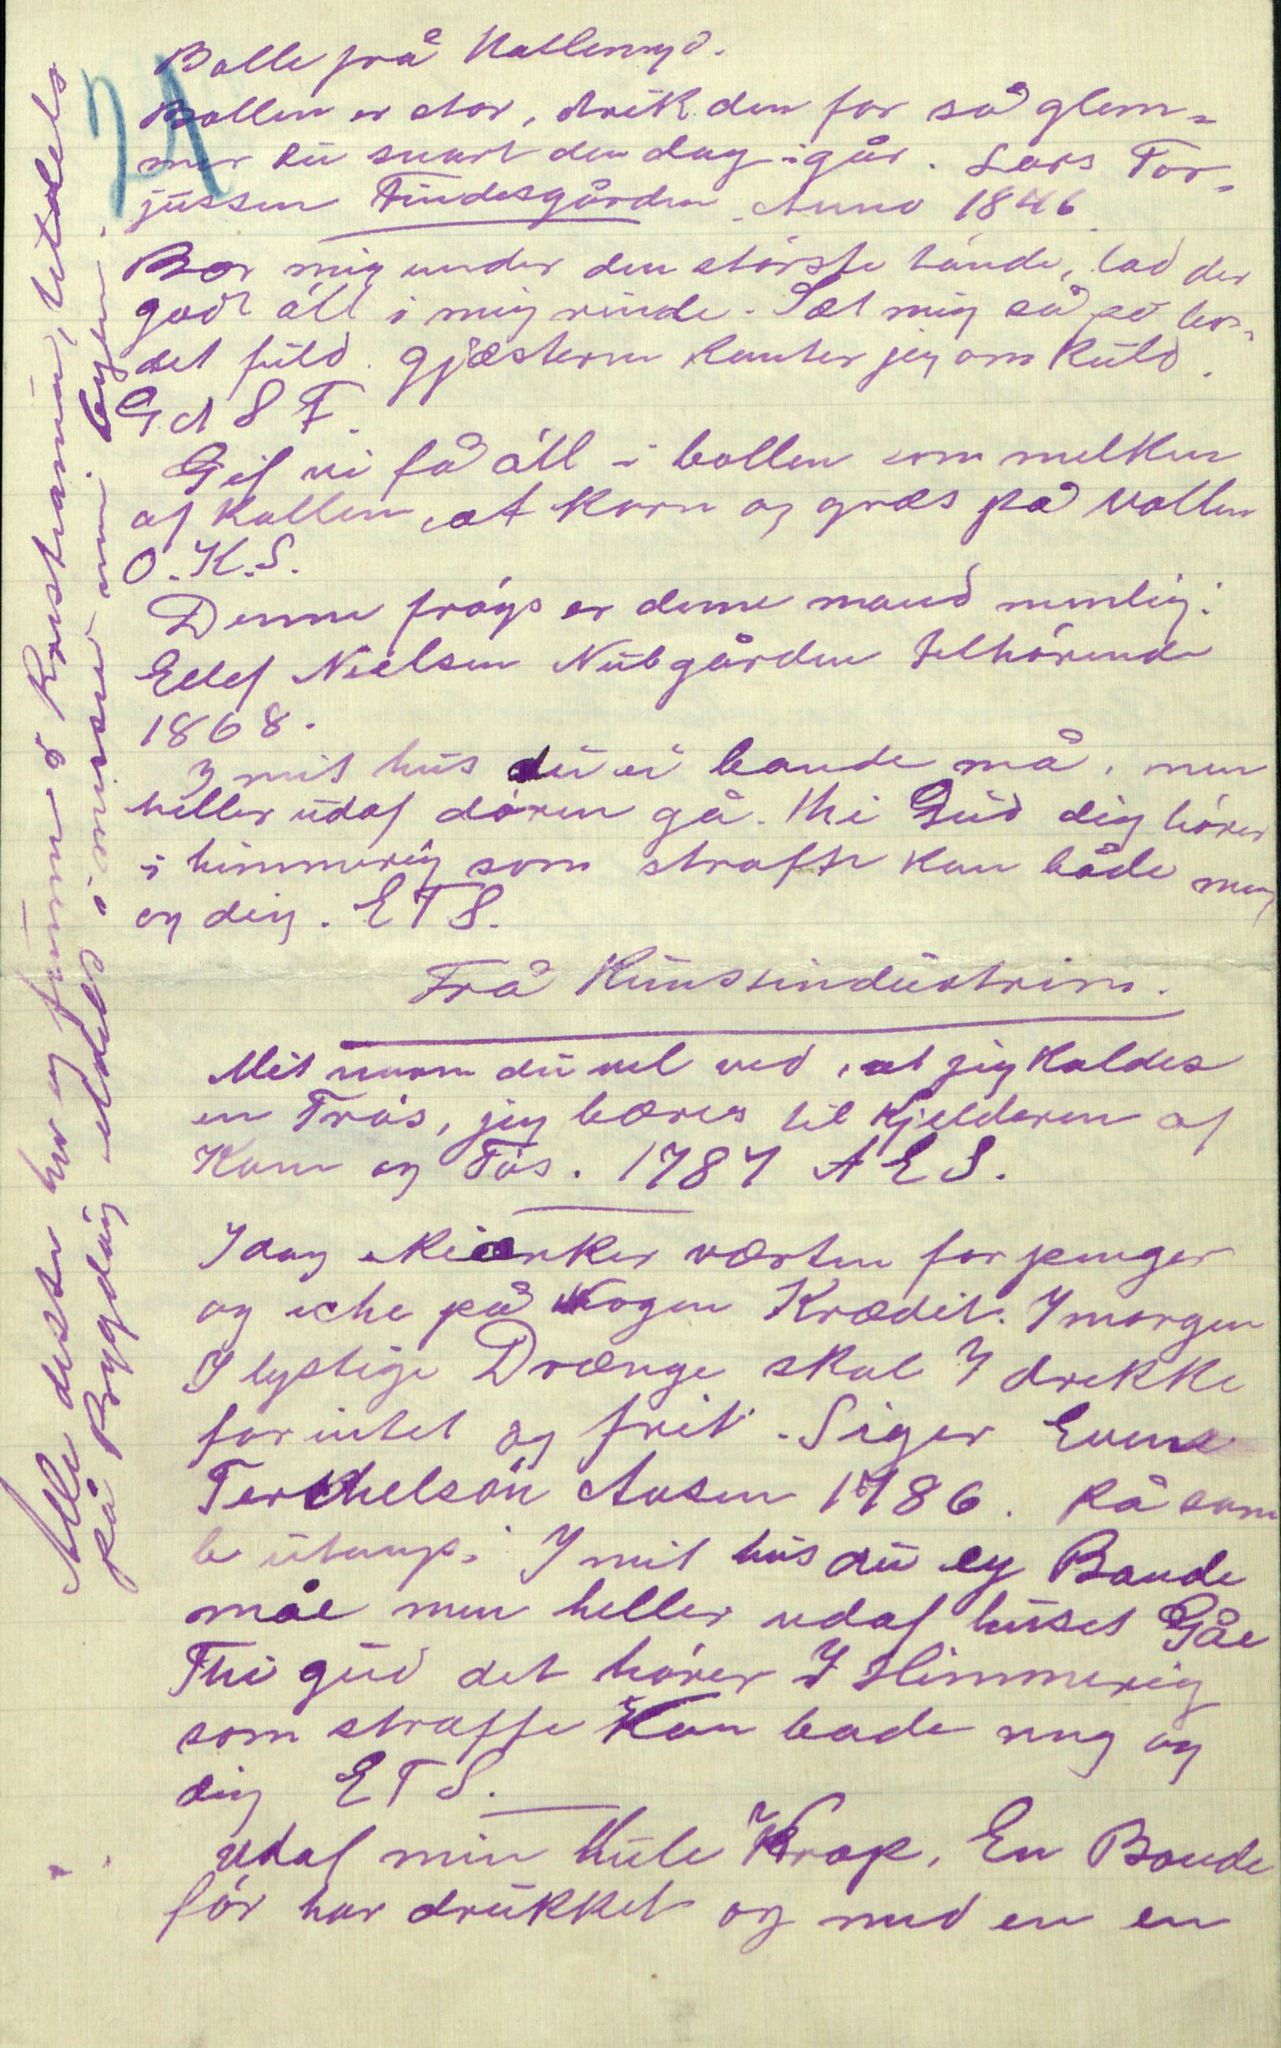 Bolle frå Kallemyd.
Bollen er stor, drik den for så glem-
mer du snart den dag igår. Lars Tor-
jussen Findesgården Anno 1846
Bær mig under den störste tönde, lad der
godt öll i mig rinde. Sæt mig så på bor-
det füld. gjæsterne kanter jeg om kuld.
G A S F.
Gif vi få öll i bollen som melken
af kallen, at korn og græs på vollen
O.K.S.
Denne fröys er denne mand nemlig:
Ellef Nielsen Nubgården tilhörende
1868.
I mit hus du ei bande må, men
heller udaf dören gå. thi Gud dig hörer
i himmerig som straffe kan både mig
og dig. E T S.
Frå Kunstindustrien.
Mit navn du vel ved, at jeg kaldes
en Trös, jeg bæres til kjelderen af
Kone og Tös. 1787 A E S.
I dag skienker værten for penger
og icke på nogen Krædit. I morgen
I lystige Drænge skal I drekke
for intet og frit. Siger Evens
Terchelsön Aasen 1786. På sam
b utanp. I mit hus du ey Bande
måe men heller udaf huset Gåe
Thi gud det hörer I Himmerig
som straffe Kan bade mig og
dig E T S.
Udaf min hule Krop, En Bonde
för har drukket og med en en
Alle desse her eg funne o Kristiania, utdels
på Bygdöy utdels i museer inni byen.
24